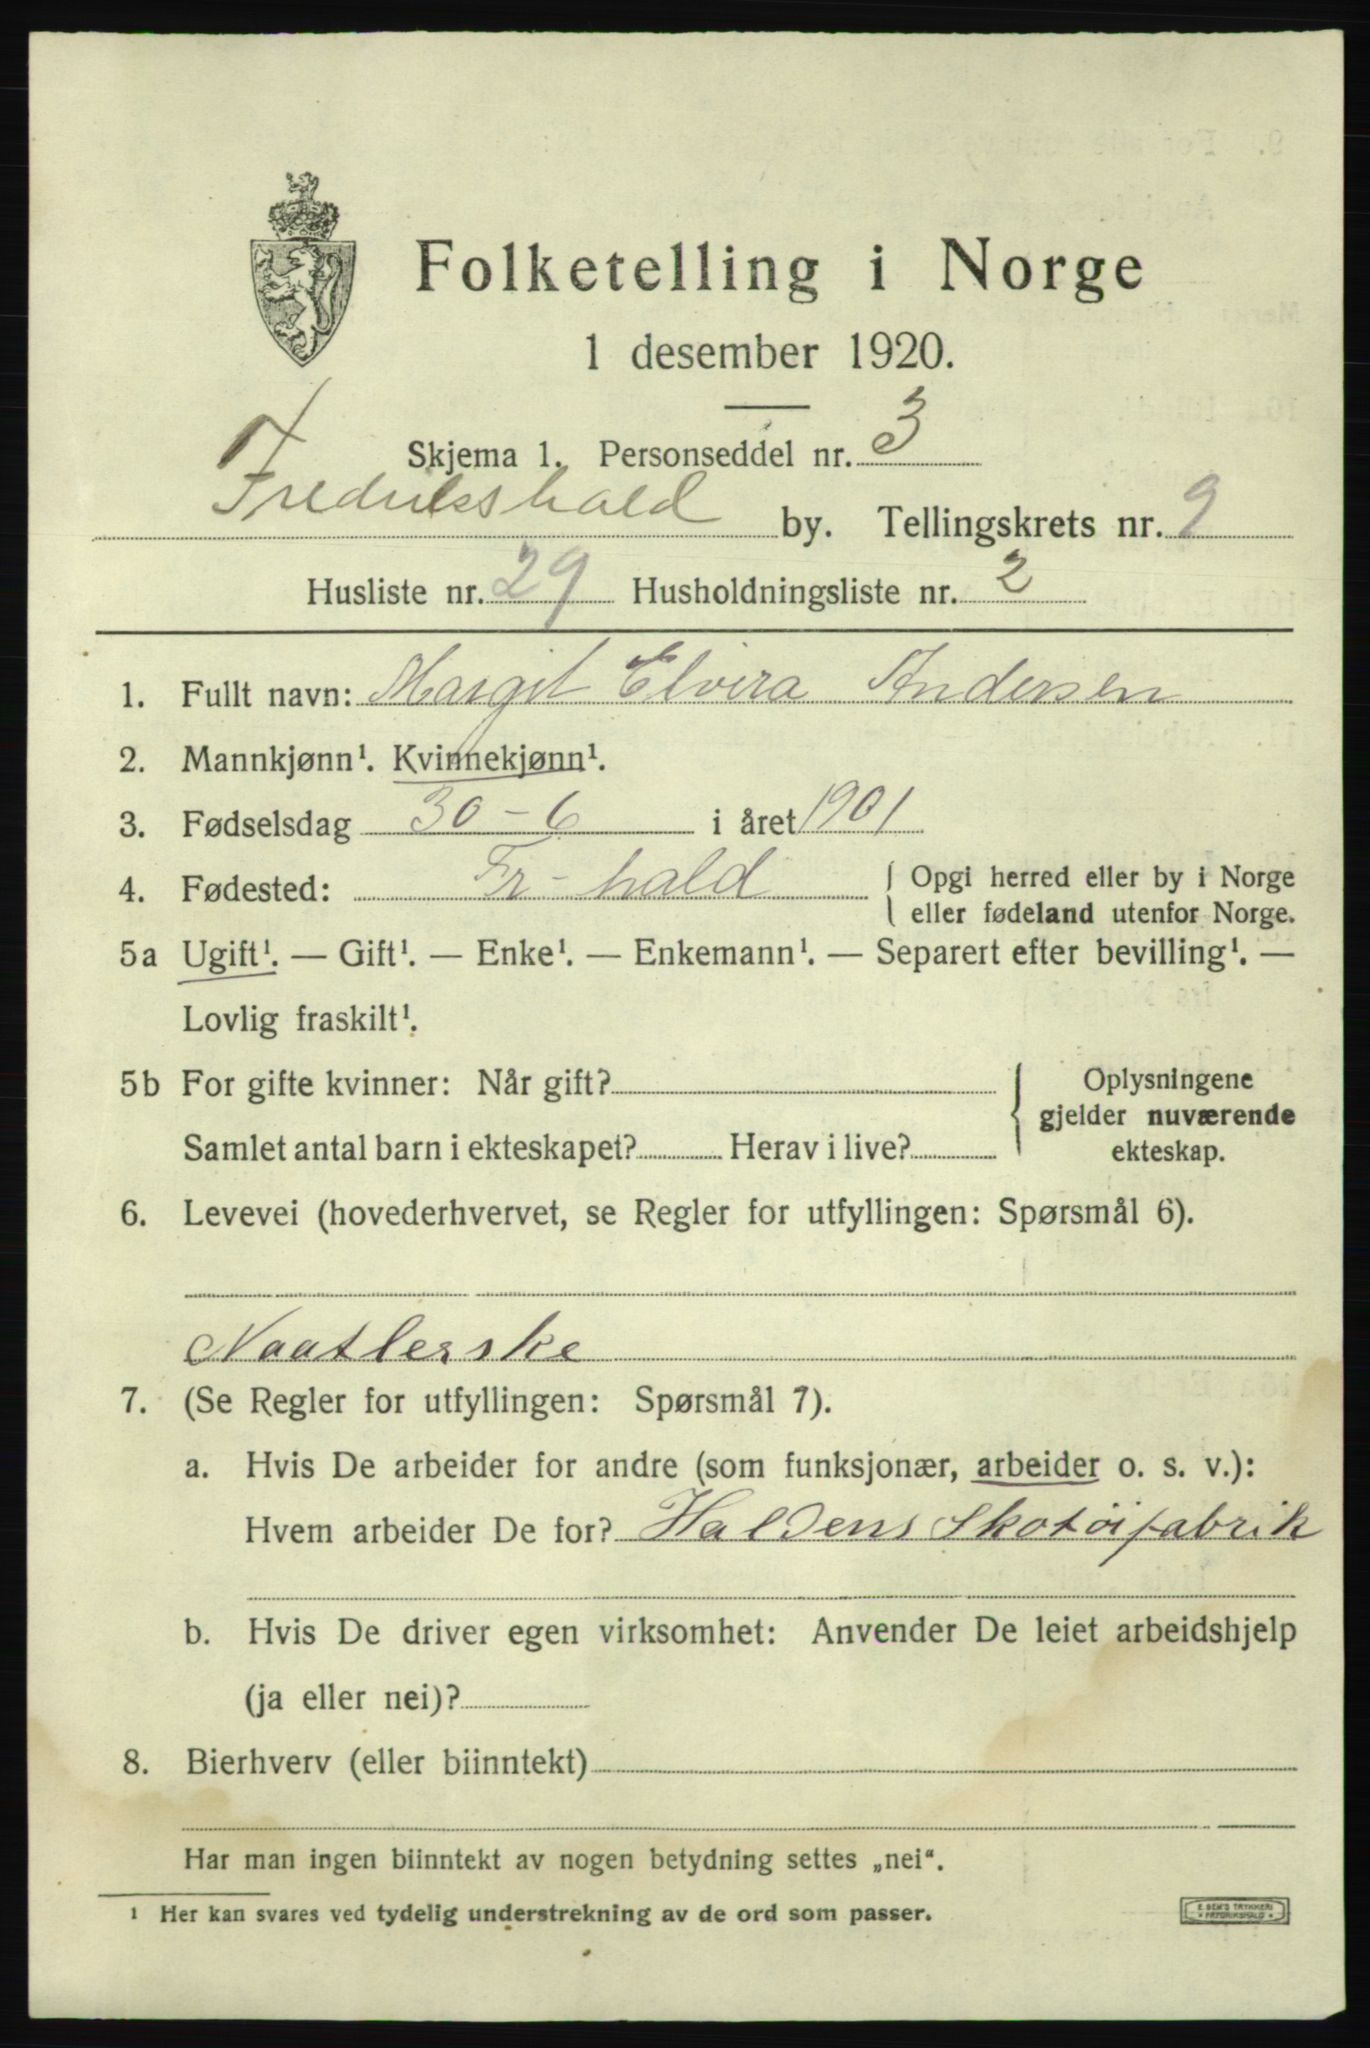 Folketelling i Norge
1 desember 1920.
Skjema 1. Personseddel nr. 3
Fredrikshald by. Tellingskrets nr. 9
Husliste nr. 29 Husholdningsliste nr. 2
1. Fullt navn: Margit Elvira Andersen
2. Mannkjønn¹. Kvinnekjønn¹.
3. Fødselsdag 30-6 i året 1901
4. Fødested: Fr-hald { Opgi herred eller by i Norge
eller fødeland utenfor Norge.
5a Ugift¹. — Gift¹. — Enke¹. — Enkemann¹. — Separert efter bevilling¹. —
Lovlig fraskilt¹.
5b For gifte kvinner: Når gift? { Oplysningene
gjelder nuværende
Samlet antal barn i ekteskapet? Herav i live? ekteskap.
6. Levevei (hovederhvervet, se Regler for utfyllingen: Spørsmål 6).
Naatlerske
7. (Se Regler for utfyllingen: Spørsmål 7).
a. Hvis De arbeider for andre (som funksjonær, arbeider o. s. v.):
Hvem arbeider De for? Haldens Skotøifabrik
b. Hvis De driver egen virksomhet: Anvender De leiet arbeidshjelp
(ja eller nei)?
8. Bierhverv (eller biinntekt)
Har man ingen biinntekt av nogen betydning settes „nei“.
¹ Her kan svares ved tydelig understrekning av de ord som passer.
E. SEM'S TRYKKERI
FREDRIKSHALD